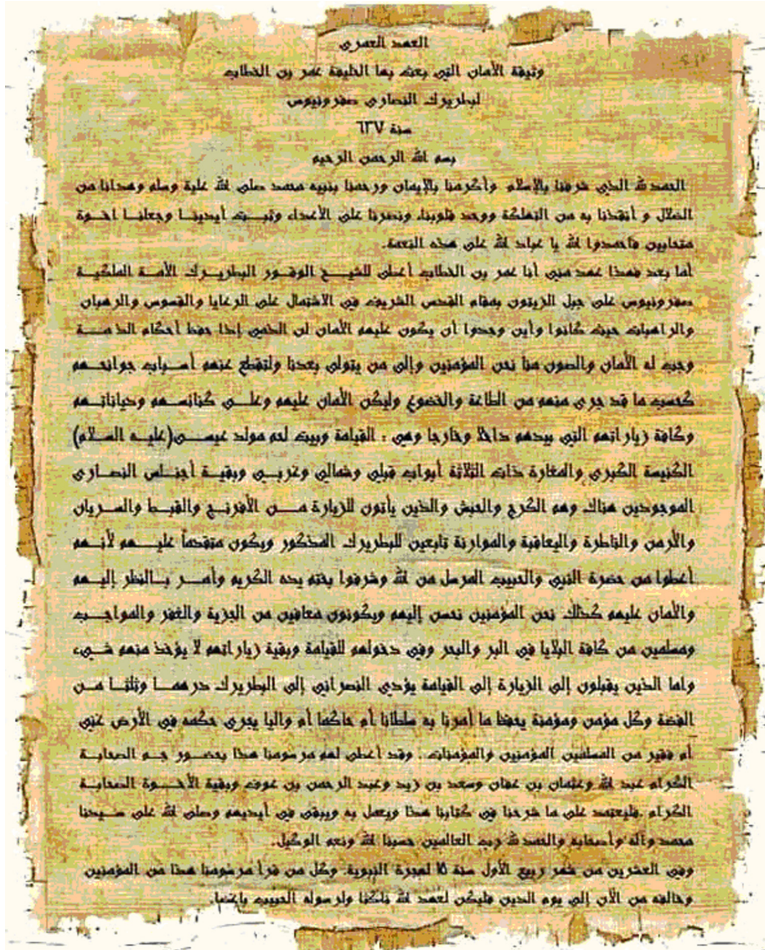 العهد العمري
وثيقة الأمان التي بعث بها الخليفة عمر بن الخطاب
لبطريرك النصارى صفرونيوس
سنة ٦٣٧
بسم الله الرحمن الرحيم
الحمد لله الذي شرفنا بالإسلام وأكرمنا بالإيمان ورحمنا بنبيه محمد صلى الله علية وسلم وهدانا من
الضلال و أنقذنا به من التهلكة ووحد قلوبنا، ونصرنا على الأعداء وثبت أيدينا وجعلنا اخوة
متحابين فاحمدوا الله يا عباد الله على هذه النعمة.
أما بعد فهذا عهد مني أنا عمر بن الخطاب أعطي للشيخ الوقور البطريرك الأمة الملكية
صفرونيوس على جبل الزيتون بمقام القدس الشريف في الاشتمال على الرعايا والقسوس والرهبان
والراهبات حيث كانوا وأين وجدوا أن يكون عليهم الأمان لن الذمي إذا حفظ أحكام الذمة
وجب له الأمان والصون منا نحن المؤمنين وإلى من يتولى بعدنا ولتقطع عنهم أسباب جوانحهم
كحسب ما قد جرى منهم من الطاعة والخضوع وليكن الأمان عليهم وعلى كنائسهم ودياناتهم
وكافة زياراتهم التي بيدهم داخلا وخارجا وهي : القيامة وبيت لحم مولد عيسى(عليه السلام)
الكنيسة الكبرى والمغارة ذات الثلاثة أبواب قبلي وشمالي وغربي وبقية أجناس النصارى
الموجودين هناك وهم الكرج والحبش والذين يأتون للزيارة من الأفرنج والقبط والسريان
والأرمن والناطرة واليعاقبة والموارنة تابعين للبطريرك المذكور ويكون متقدماً عليهم لأنهم
أعطوا من حضرة النبي والحبيب المرسل من الله وشرفوا بختم يده الكريم وأمر بالنظر إليهم
والأمان عليهم كذلك نحن المؤمنين نحسن إليهم ويكونون معافين من الجزية والغفر والمواجب
ومسلمين من كافة البلايا في البر والبحر وفي دخولهم للقيامة وبقية زياراتهم لا يؤخذ منهم شيء
واما الذين يقبلون إلى الزيارة إلى القيامة يؤدي النصراني إلى البطريرك درهما وثلثا من
الفضة وكل مؤمن ومؤمنة يحفظ ما أمرنا به سلطانا أم حاكما أم واليا يجري حكمه في الأرض غني
أم فقير من المسلمين المؤمنين والمؤمنات ؛ وقد أعطى لهم مرسومنا هذا بحضور جم الصحابة
الكرام عبد الله وعثمان بن عفان وسعد بن زيد وعبد الرحمن بن عوف وبقية الأخوة الصحابة
الكرام .فليعتمد على ما شرحنا في كتابنا هذا ويعمل به ويبقى في أيديهم وصلى الله على سيدنا
محمد وآله وأصحابه والحمد لله رب العالمين حسبنا الله ونعم الوكيل.
وفي العشرين من شهر ربيع الأول سنة ١٥ لهجرة النبوية. وكل من قرأ مرسومنا هذا من المؤمنين
وخالفه من الآن إلى يوم الدين فليكن لعهد الله ناكثا ولرسوله الحبيب باغضا.